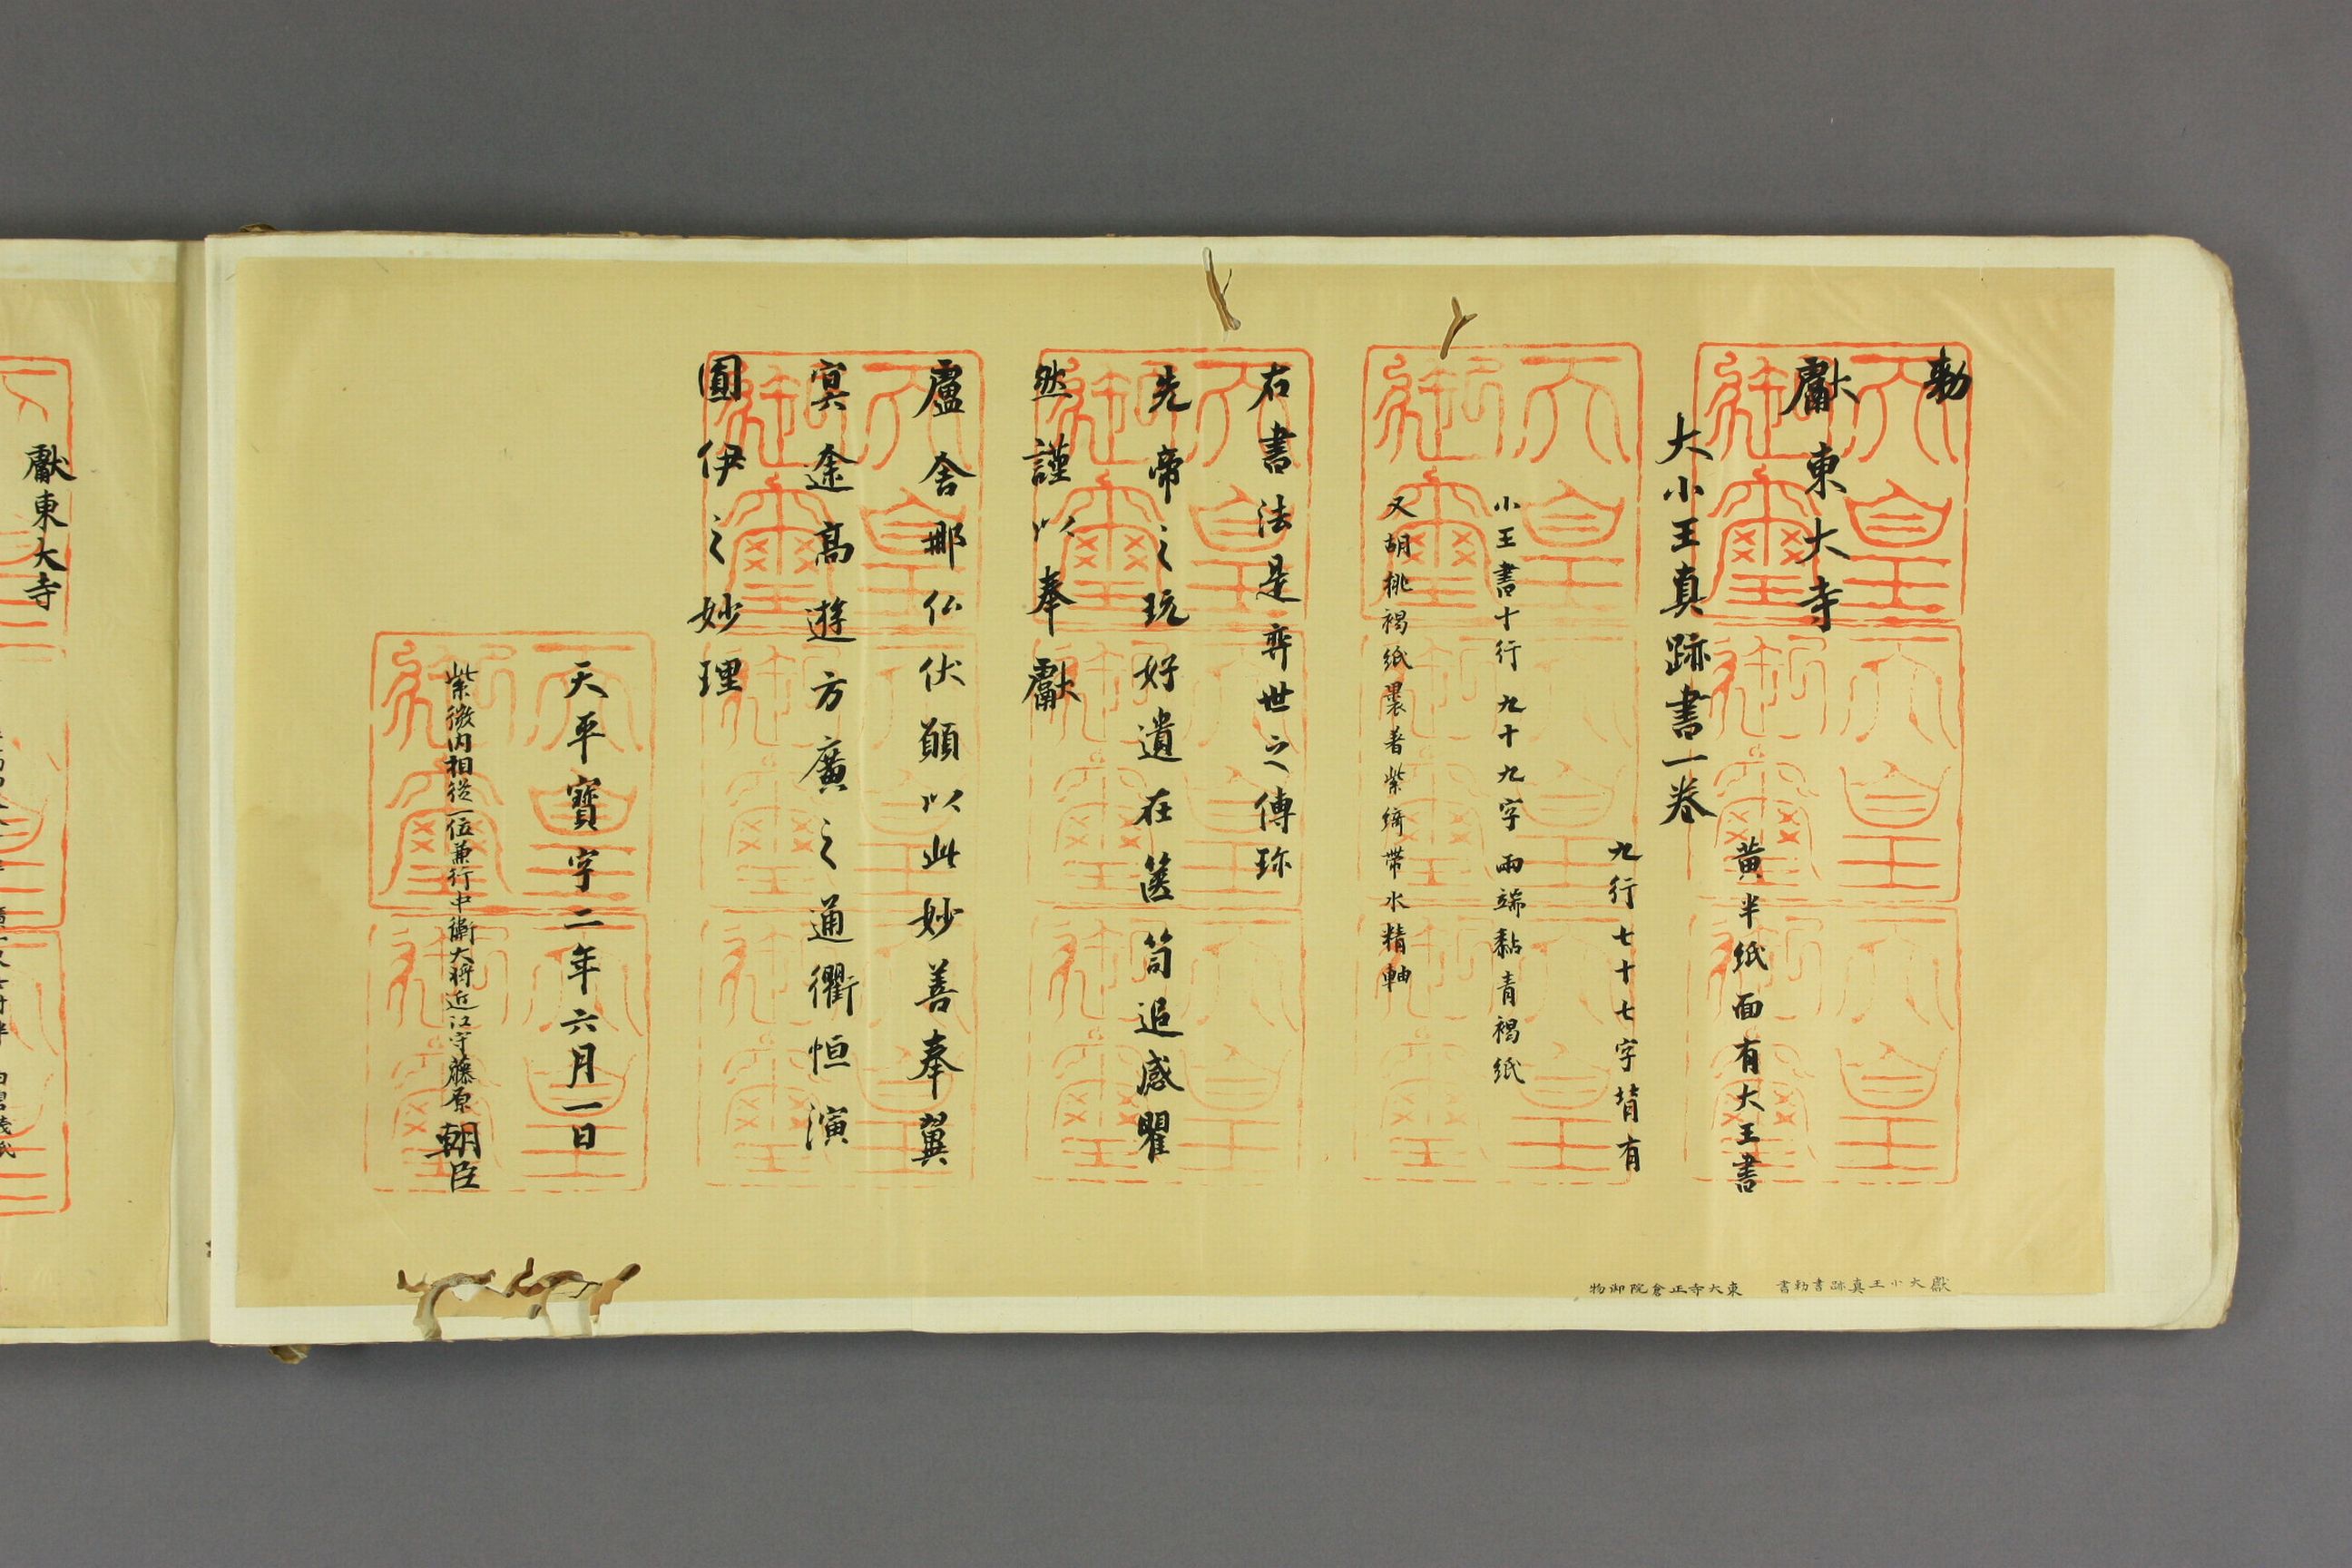 勅
獻東大寺
大小王真跡書一卷
黄半紙面有大王書
九行七十七字背有
小王書十行九十九字兩端黏青褐紙
又胡桃褐紙裹著紫綺帶水精軸
右書法是弈世之傳珎
先帝之玩好遺在篋笥追感瞿
然謹以奉獻
盧舍那仏伏願以此妙善奉翼
冥途高遊方廣之通衢恒演
圓伊之妙理
天平寶字二年六月一日
紫微内相從二位兼行中衛大将近江守藤原朝臣
天皇御璽
獻大小王真跡書勅書 東大寺正倉院御物
獻東大寺